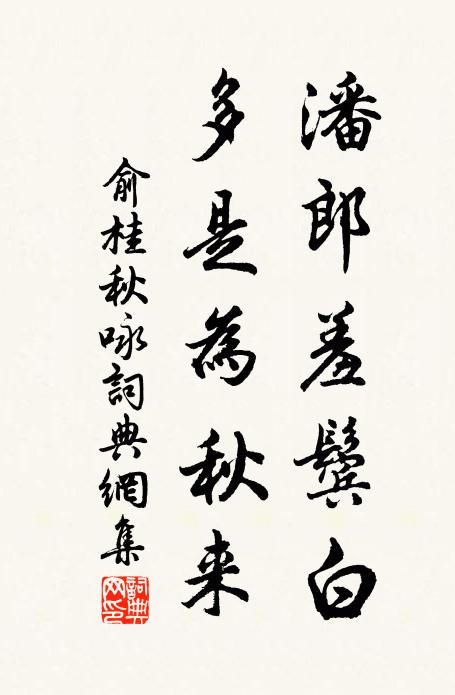 潘郎羞鬓白
多是為秋来
俞桂秋咏詞典網集
詞典網印